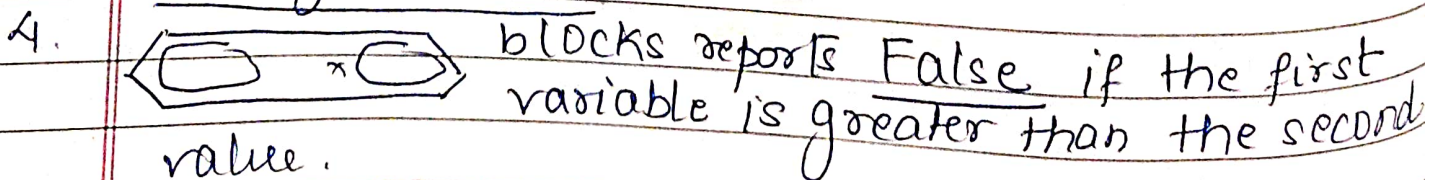 4. x blocks reports False if the first
variable is greater than the second
value.